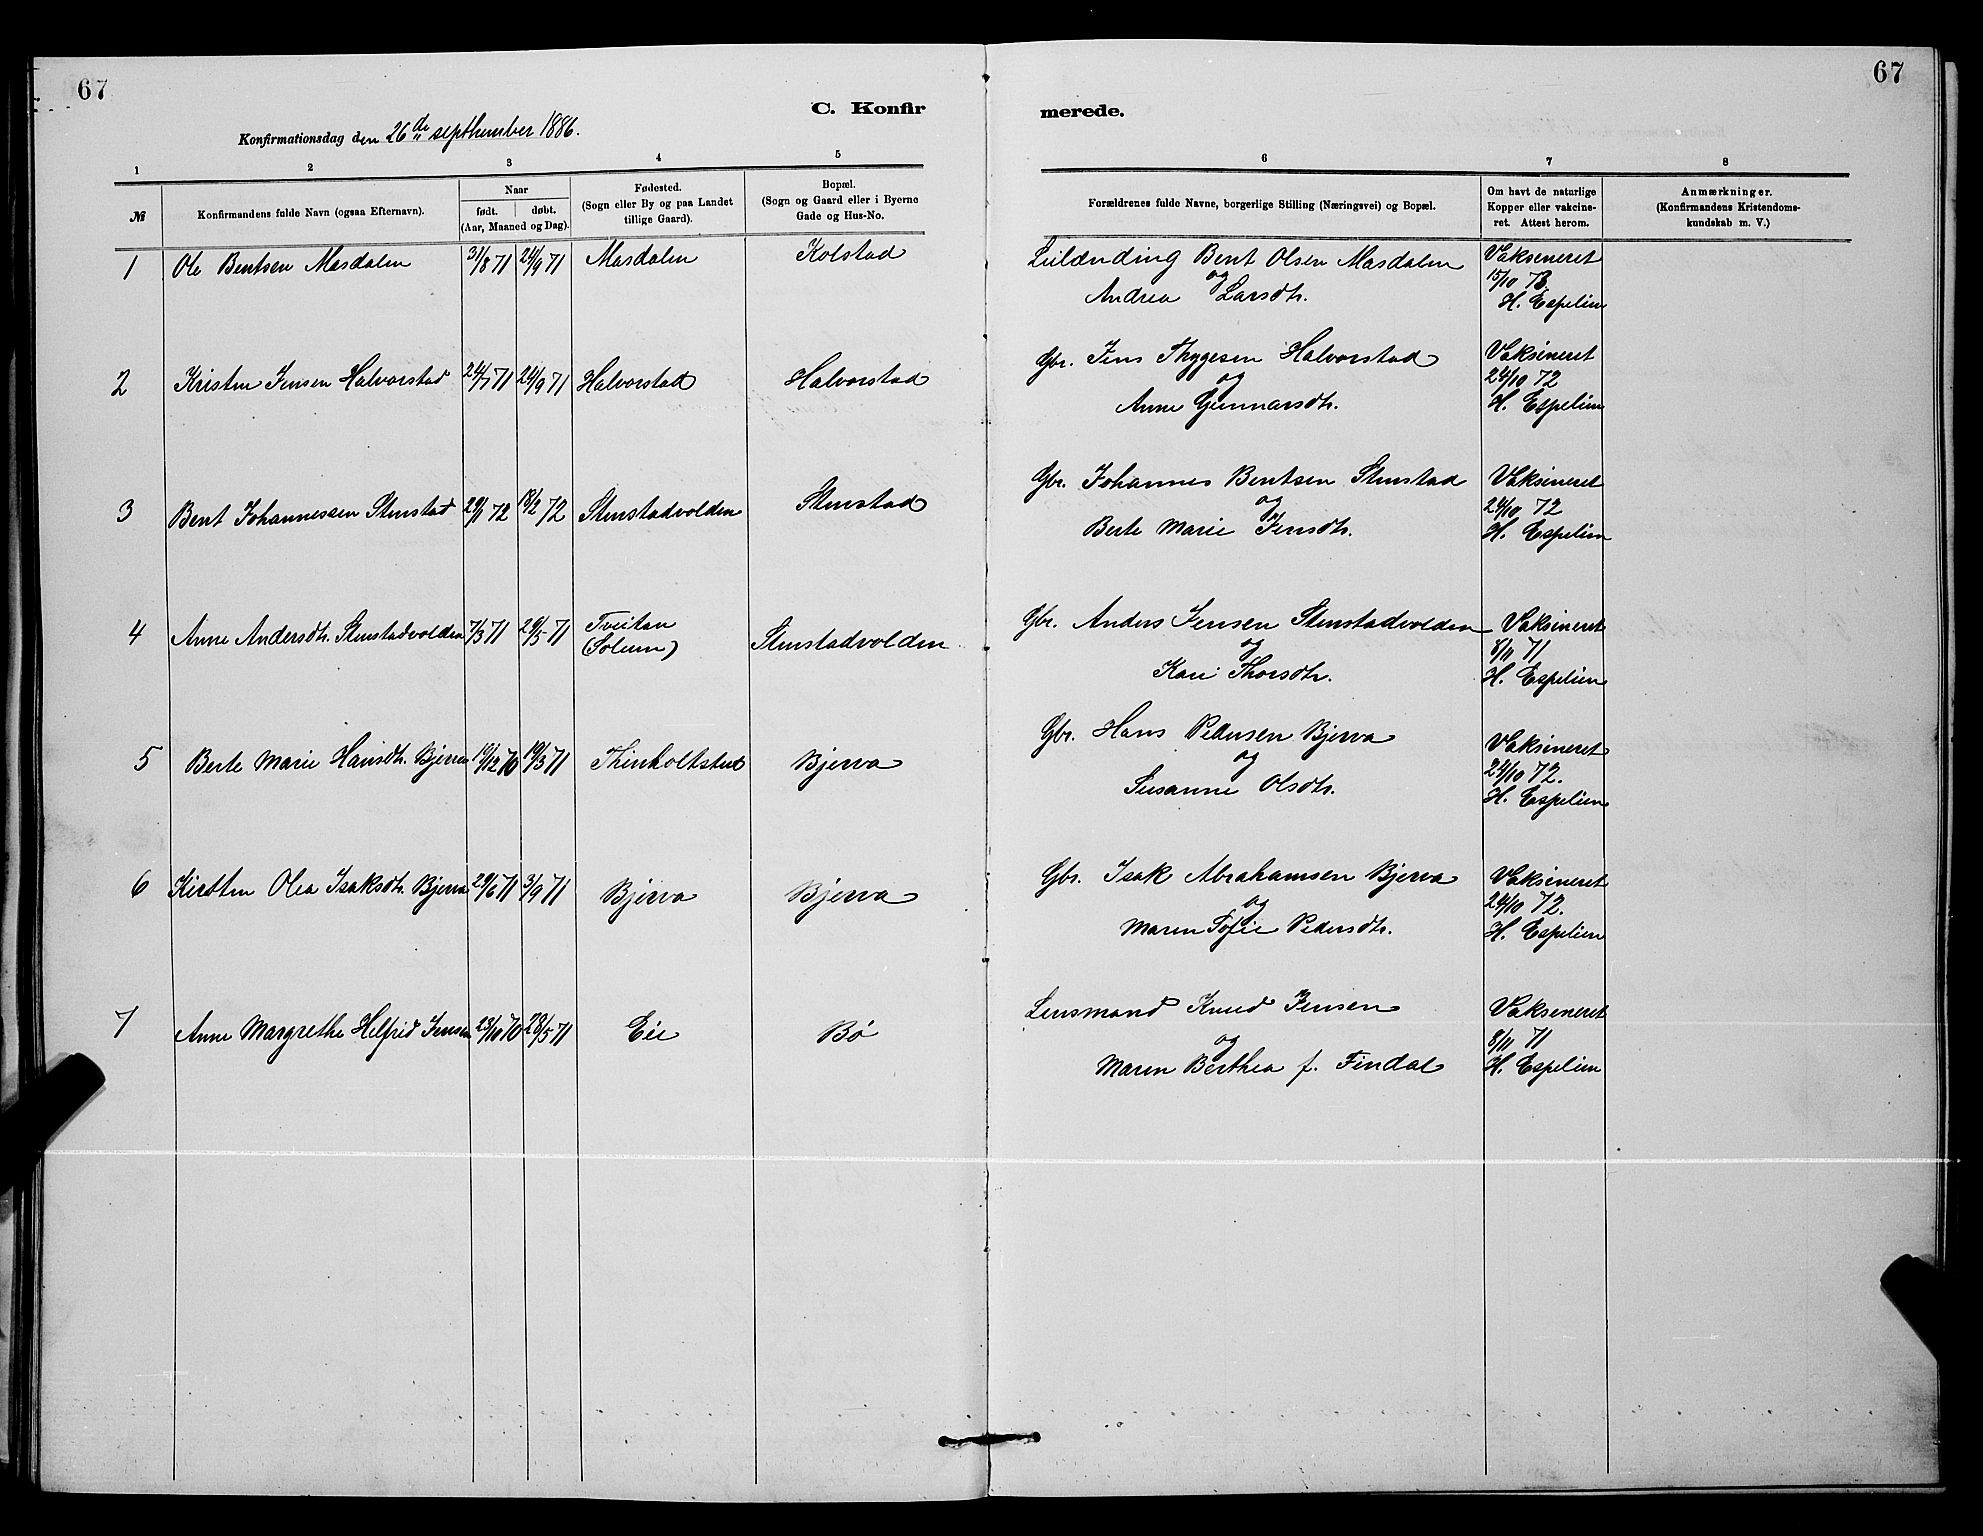 67
67
C. Konfir
merede.
Konfirmationsdag den 26de septhember 1886.
1 2 3 4 5 6 7 8
№
Konfirmandens fulde Navn (ogsaa Efternavn).
Naar
født. døbt.
(Aar, Maaned og Dag).
Fødested.
(Sogn eller By og paa Landet
tillige Gaard).
Bopæl.
(Sogn og Gaard eller i Byerne
Gade og Hus-No.
Forældrenes fulde Navne, borgerlige Stilling (Næringsvei) og Bopæl.
Om havt de naturlige
Kopper eller vakcine-
ret. Attest herom.
Anmærkninger.
(Konfirmandens Kristendoms-
kundskab m. V.)
1 Ole Bentsen Masdalen 31/8 71 24/9 71 Masdalen Kolstad
Leilænding Bent Olsen Masdalen
og
Andrea Larsdtr.
Vaksineret
15/10 73.
H. Espelien
2 Kristen Jensen Halvorstad 24/7 71 24/9 71 Halvorstad Halvorstad
Gbr. Jens Thygesen Halvorstad
og
Anne Gunnarsdtr.
Vaksineret
24/10 72
H. Espelien
3 Bent Johannessen Stenstad 29/1 72 18/2 72 Stenstadvolden Stenstad
Gbr. Johannes Bentsen Stenstad
og
Berte Marie Jensdtr.
Vaksineret
24/10 72
H. Espelien
4 Anne Andersdtr. Stenstadvolden 7/3 71 29/5 71 Tveitan
(Solum)
Stenstadvolden
Gbr. Anders Jensen Stenstadvolden
og
Kari Thorsdtr.
Vaksineret
8/11 71
H. Espelien
5 Berte Marie Hansdtr. Bjerva 19/12 70 19/3 71 Thinholtstad Bjerva
Gbr. Hans Pedersen Bjerva
og
Susanne Olsdtr.
Vaksineret
24/10 72.
H. Espelien
6 Kirsten Olea Isaksdtr. Bjerva 29/6 71 3/9 71 Bjerva Bjerva
Gbr. Isak Abrahamsen Bjerva
og
Maren Sofie Pedersdtr.
Vaksineret
24/10 72.
H. Espelien
7 Anne Margrethe Helfrid Jensen 23/10 70 28/5 71 Eie Bø
Lensmand Knud Jensen
og
Maren Berthea f. Findal
Vaksineret
8/11 71
H. Espelien